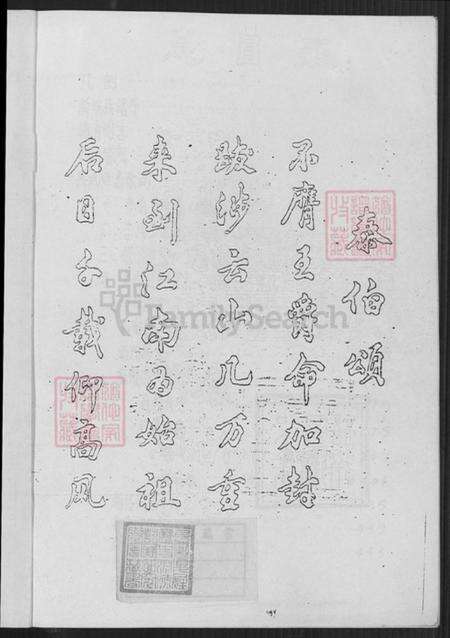 泰伯颂
不膺王爵命加封
跋涉云山几万重
来到江南为始祖
后日千载仰高风
FamilySearch